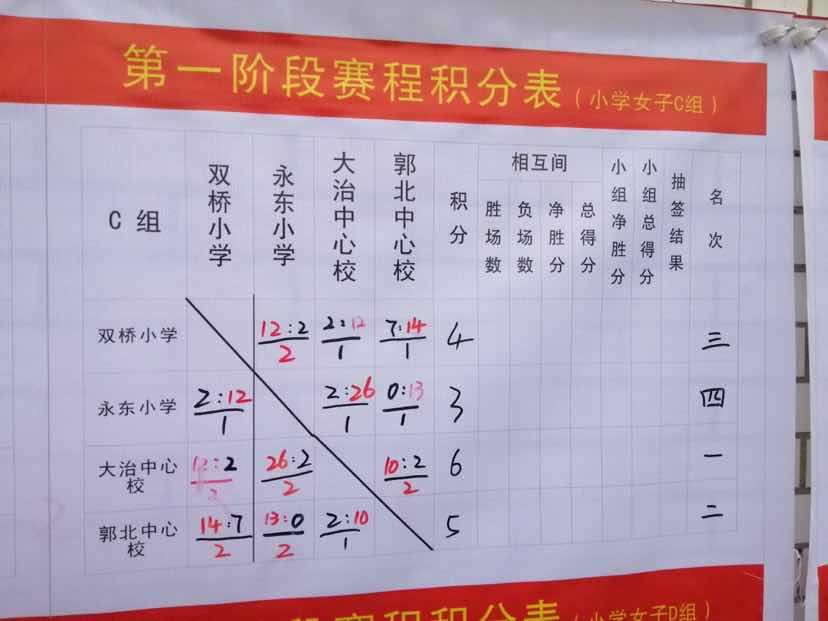 第一阶段赛程积分表（小学女子C组）
C 组 双桥小学 永东小学 大治中心校 郭北中心校 积分 相互间 胜场数 负场数 净胜分 总得分 小组净胜分 小组总得分 抽签结果 名次
双桥小学 12:2 2 2:12 1 7:14 1 4 三
永东小学 2:12 1 2:26 1 0:13 1 3 四
大治中心校 12:2 2 26:2 2 10:2 2 6 一
郭北中心校 14:7 2 13:0 2 2:10 1 5 二
段赛程积分表（小学女子D组）